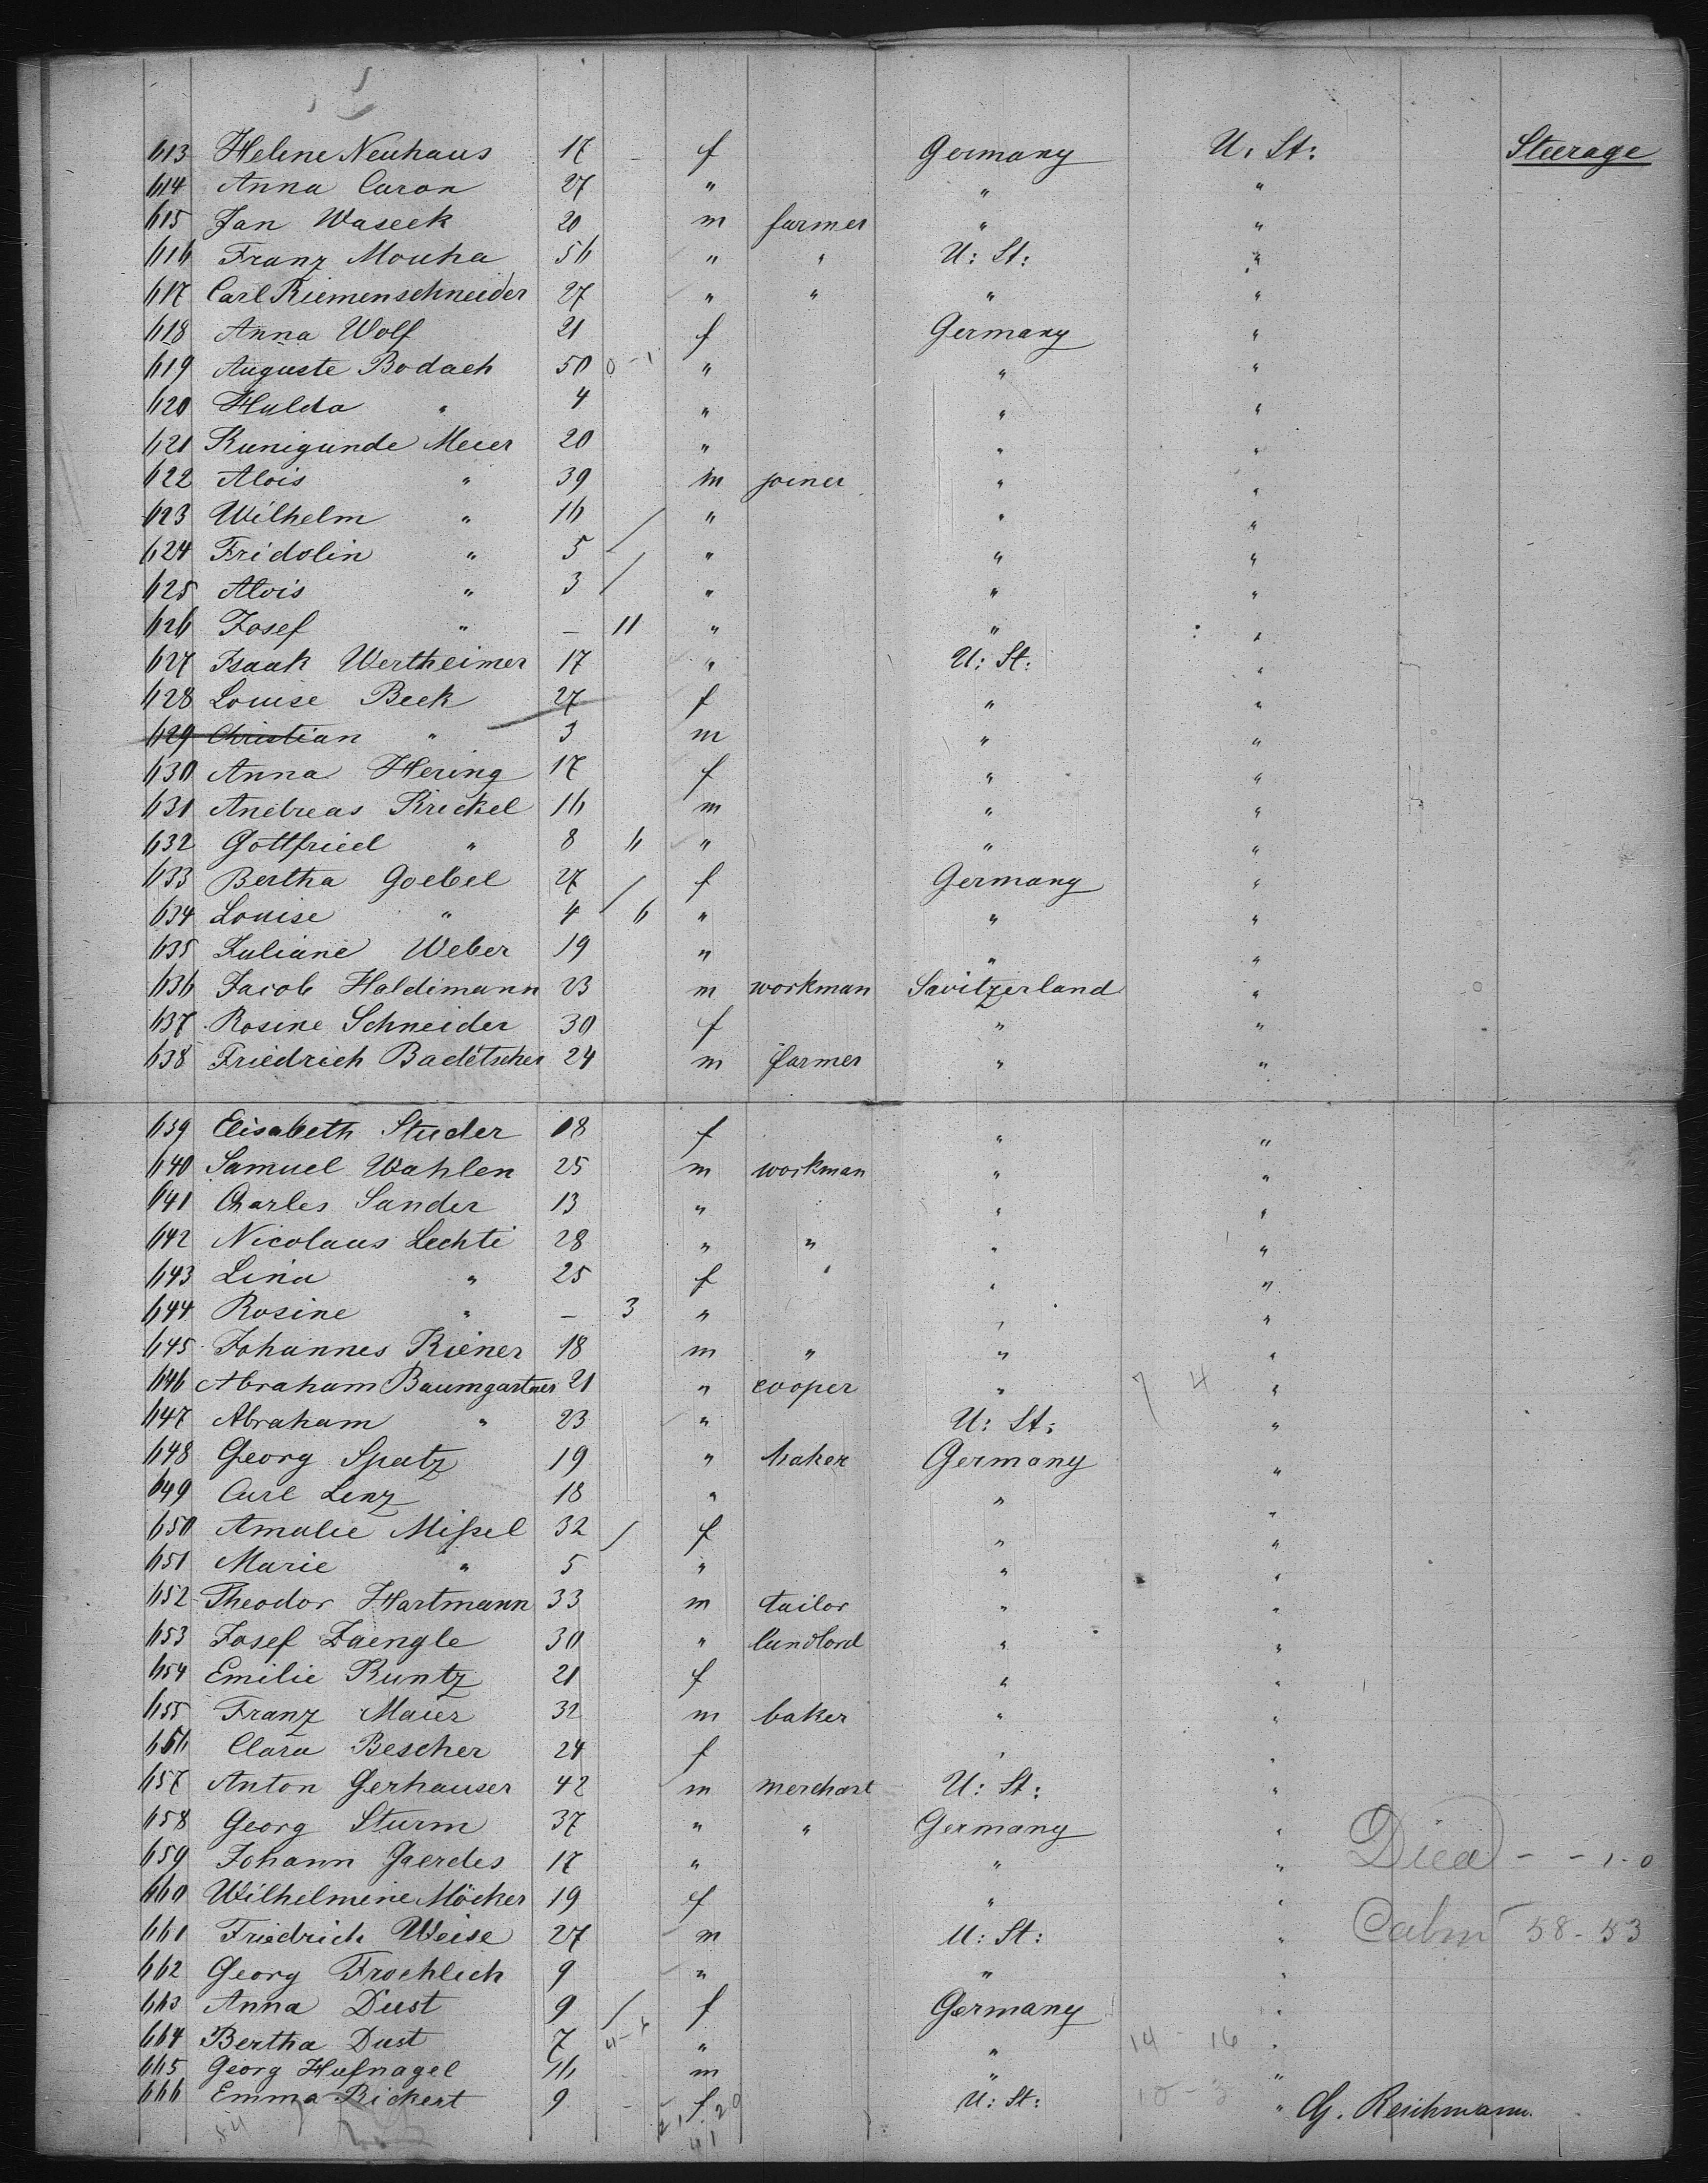 613 Helene Neuhaus 17 f Germany U. St: Steerage
614 Anna Caron 27 " " "
615 Jan Waseck 20 m farmer " "
616 Franz Mouha 56 " " U: St: "
617 Carl Riemenschneider 27 " " " "
618 Anna Wolf 21 f Germany "
619 Auguste Bodach 50 " " "
620 Hulda " 4 " " "
621 Kunigunde Meier 20 " " "
622 Alois " 39 m joiner " "
623 Wilhelm " 16 " " "
624 Fridolin " 5 " " "
625 Alois " 3 " " "
626 Josef " – 11 " " "
627 Isaak Wertheimer 17 " U: St: "
628 Louise Beck 27 f " "
629 Christian " 3 m " "
630 Anna Hering 17 f " "
631 Andreas Krickel 16 m " "
632 Gottfried " 8 6 " " "
633 Bertha Goebel 27 f Germany "
634 Louise " 4 6 " " "
635 Juliane Weber 19 " " "
636 Jacob Haldimann 23 m workman Switzerland "
637 Rosine Schneider 30 f " "
638 Friedrich Badetscher 24 m farmer " "
639 Elisabeth Studer 18 f " "
640 Samuel Wahlen 25 m workman " "
641 Charles Sander 13 " " "
642 Nicolaus Lechti 28 " " " "
643 Lina " 25 f " "
644 Rosine " – 3 " " "
645 Johannes Riener 18 m " " "
646 Abraham Baumgartner 21 " cooper " 7 4 "
647 Abraham " 23 " U: St: "
648 Georg Spatz 19 " baker Germany "
649 Carl Lenz 18 " " "
650 Amalie Mißel 32 f " "
651 Marie " 5 " " "
652 Theodor Hartmann 33 m tailor " "
653 Josef Zaengle 30 " landlord " "
654 Emilie Kuntz 21 f " "
655 Franz Maier 32 m baker " "
656 Clara Bescher 24 f " "
657 Anton Gerhauser 42 m merchant U: St: "
658 Georg Sturm 37 " " Germany "
659 Johann Gaerdes 17 " " " Died - - 1 - 0
660 Wilhelmine Möcker 19 f " "
661 Friedrich Weise 27 m U: St: " Cabin 58 - 53
662 Georg Froehlich 9 " " "
663 Anna Dust 9 f Germany "
664 Bertha Dust 7 " " 14 - 16 "
665 Georg Hufnagel 16 m " "
666 Emma Rickert 9 f U: St: 10 - 3 " G. Reichmann.